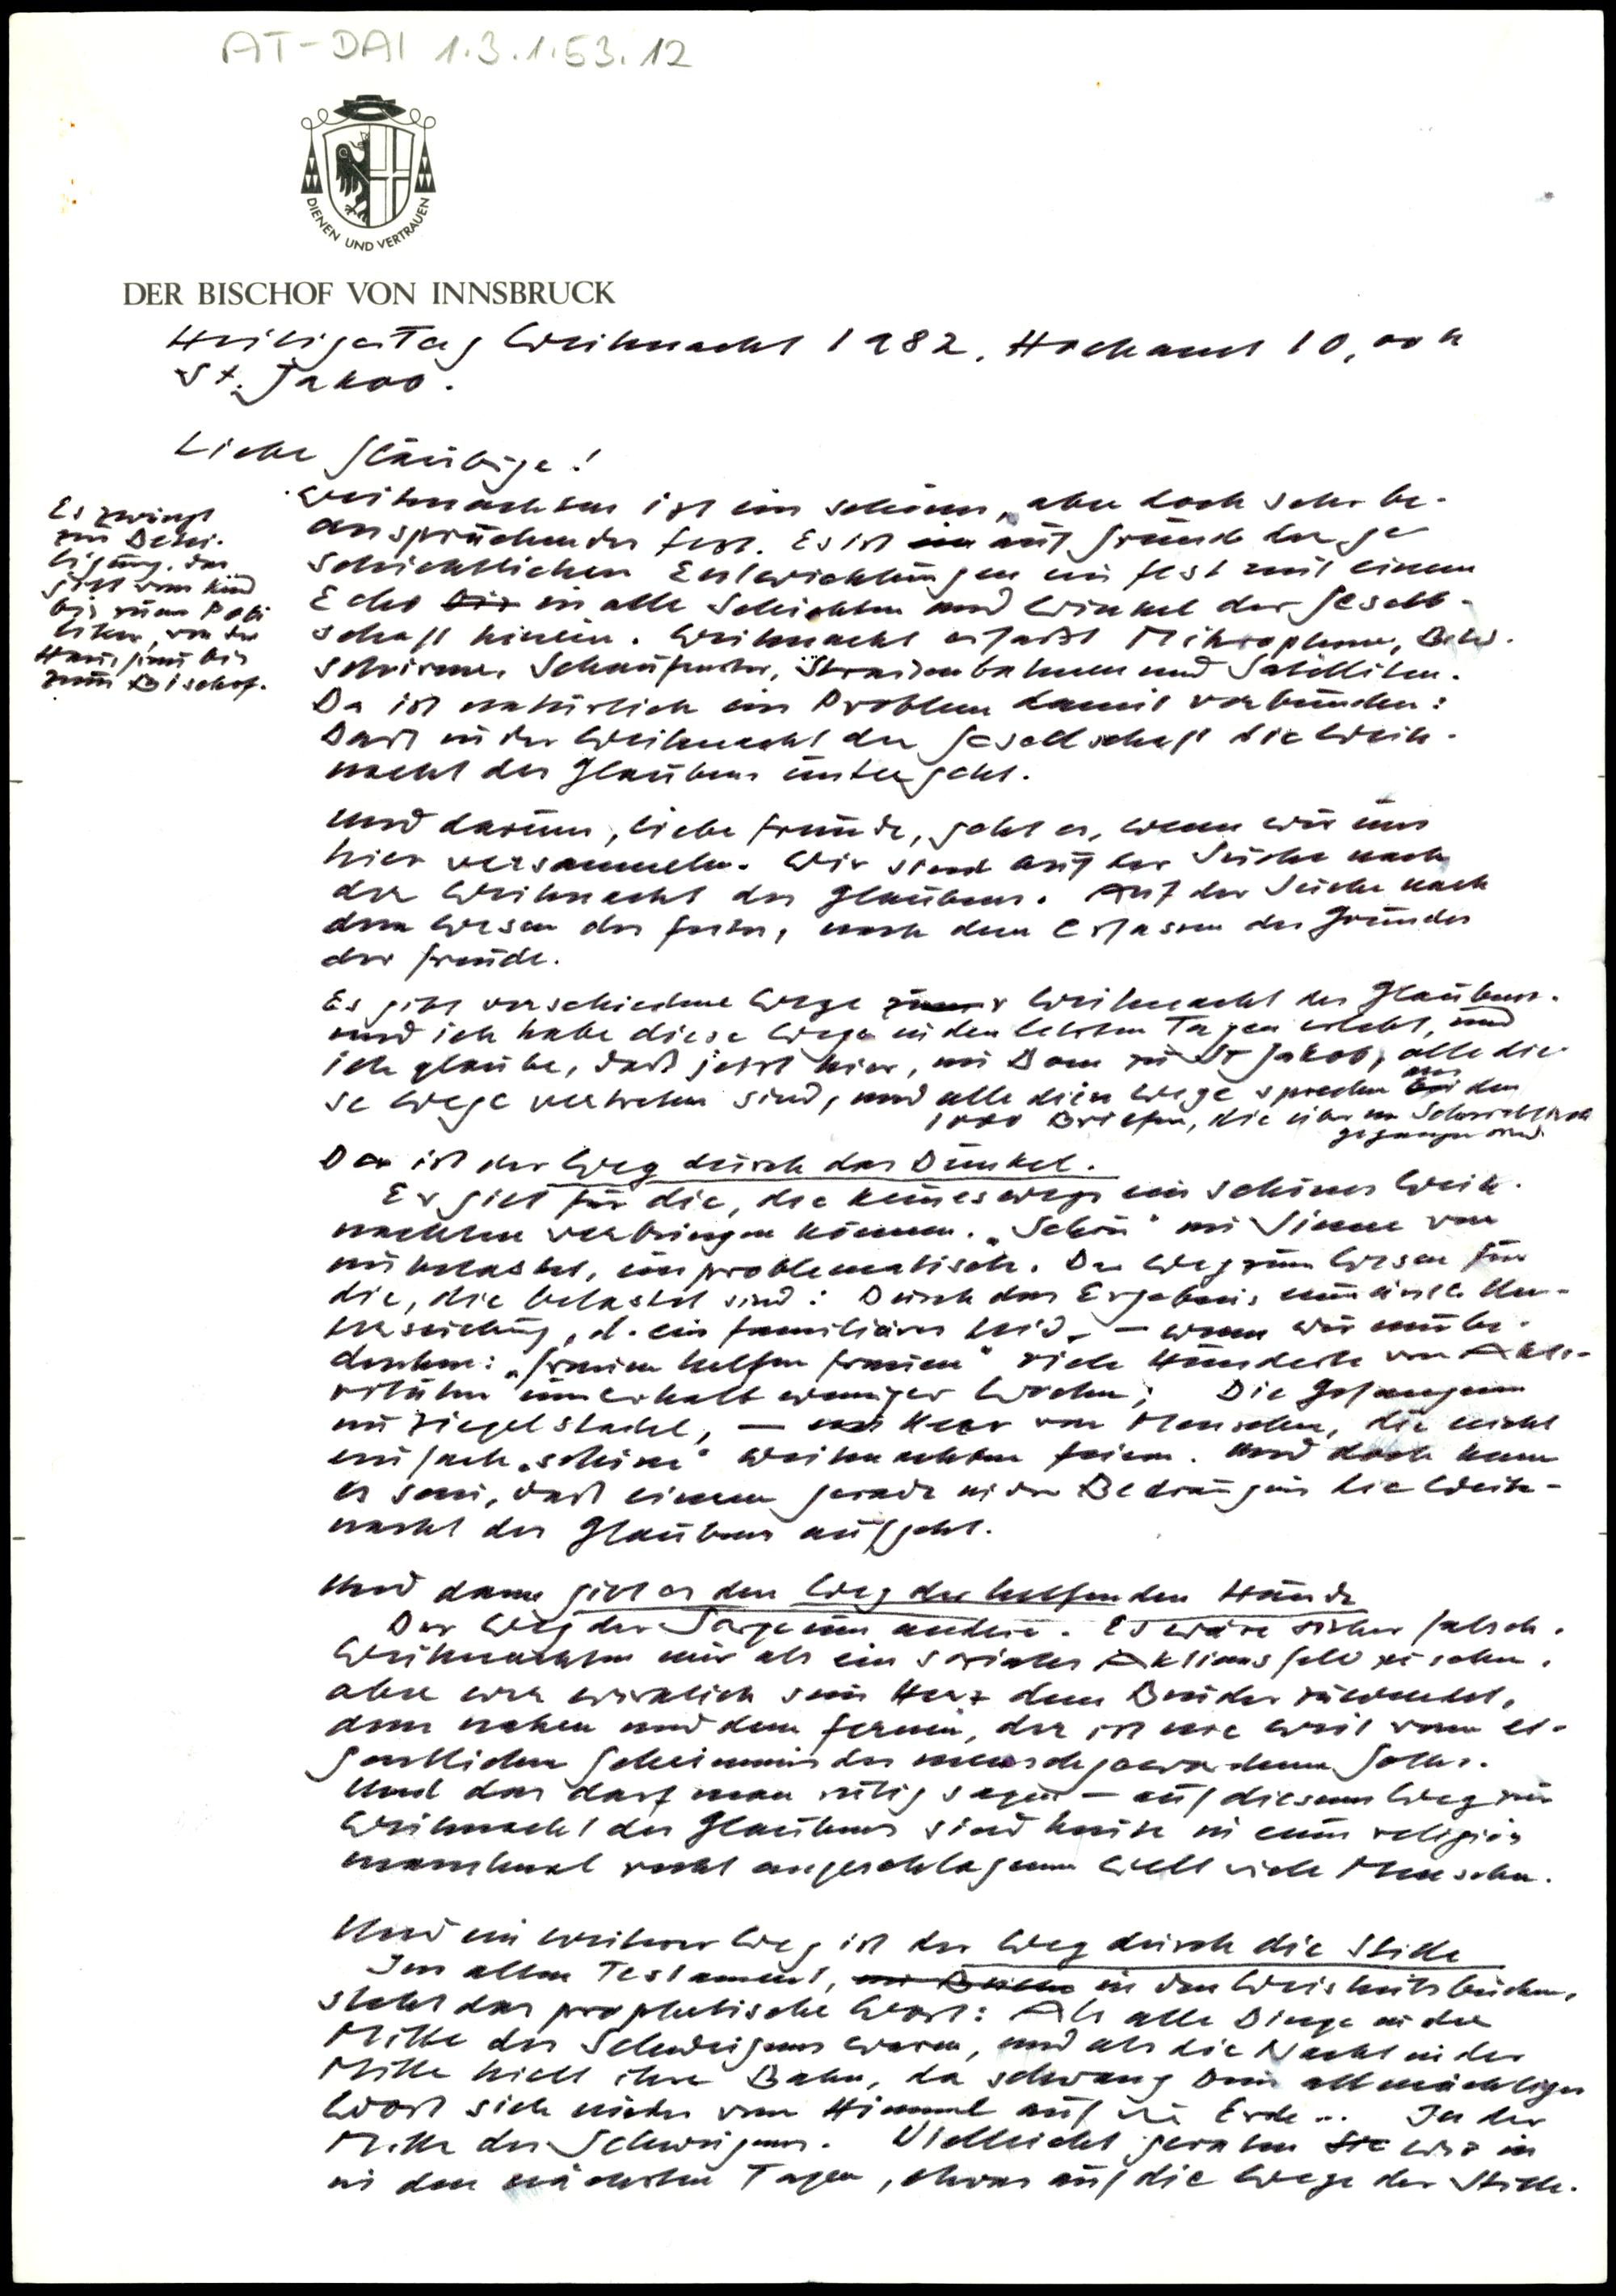 AT-DAI 1.3.1.53.12
DIENEN UND VERTRAUEN
DER BISCHOF VON INNSBRUCK
Heiliger Tag Weihnacht 1982, Hochamt 10,00 h
St. Jakob.
Liebe Gläubige!
Es zwingt
zur Betei-
ligung. Das
gilt vom Kind
bis zum Poli
tiker, von der
bis
zum Bischof.
Weihnachten ist ein schönes, aber doch sehr be-
anspruchendes Fest. Es ist ein auf Grund der ge
schichtlichen Entwicklungen ein Fest mit einem
Echo bis in alle Schichten und Winkel der Gesell-
schaft hinein. Weihnacht erfaßt Mikrophone, Bild-
schirme, Schaufenster, Straßenbahnen und Satelliten.
Da ist natürlich ein Problem damit verbunden:
Daß in der Weihnacht der Gesellschaft die Weih-
nacht des Glaubens untergeht.
Und darum, liebe Freunde, geht es, wenn wir uns
hier versammeln. Wir sind auf der Suche nach
der Weihnacht des Glaubens. Auf der Suche nach
dem Wesen des Festes, nach dem Erfassen des Grundes
der Freude.
Es gibt verschiedene Wege zur Weihnacht des Glaubens.
und ich habe diese Wege in den letzten Tagen erlebt, und
ich glaube, daß jetzt hier, im Dom zu St Jakob, alle die-
se Wege vertreten sind, und alle diese Wege sprechen aus den
1000 Briefen, die über den Schreibtisch
gegangen sind.
Da ist der Weg durch das Dunkel.
Er gilt für die, die keineswegs ein schönes Weih-
nachten verbringen können. „Schön" im Sinne von
unbelastet, unproblematisch. Der Weg zum Wesen für
die, die belastet sind: Durch das Ergebnis einer ärztl. Un-
tersuchung, d. ein familiäres Leid, — wenn wir nur be-
denken: „Frauen helfen Frauen" viele Hunderte von
innerhalb weniger Wochen; Die Gefangenen
im Ziegelstadel, — das Heer von Menschen, die nicht
einfach „schöne" Weihnachten feiern. Und doch kann
es sein, daß einem gerade in der Bedrängnis die Weih-
nacht des Glaubens aufgeht.
Und dann gibt es den Weg der helfenden Hände
Der Weg der Sorge um andere. Es wäre sicher falsch,
Weihnachten nur als ein soziales Aktionsfeld zu sehen,
aber wer wirklich sein Herz dem Bruder zuwendet,
dem nahen und dem fernen, der ist nie weit vom ei-
gentlichen Geheimnis des menschgewordenen Gottes.
Und das darf man ruhig sagen — auf diesem Weg zur
Weihnacht des Glaubens sind heute in einer religiös
manchmal recht angeschlagenen Welt viele Menschen.
Und ein weiterer Weg ist der Weg durch die Stille
Im alten Testament, in den Weisheitsbüchern,
steht das prophetische Wort: Als alle Dinge in der
Mitte des Schweigens waren, und als die Nacht in der
Mitte hielt ihre Bahn, da schwang Dein allmächtiges
Wort sich nieder vom Himmel auf die Erde... In der
Mitte des Schweigens. Vielleicht geraten Sie wir in
in den nächsten Tagen, etwas auf die Wege der Stille.